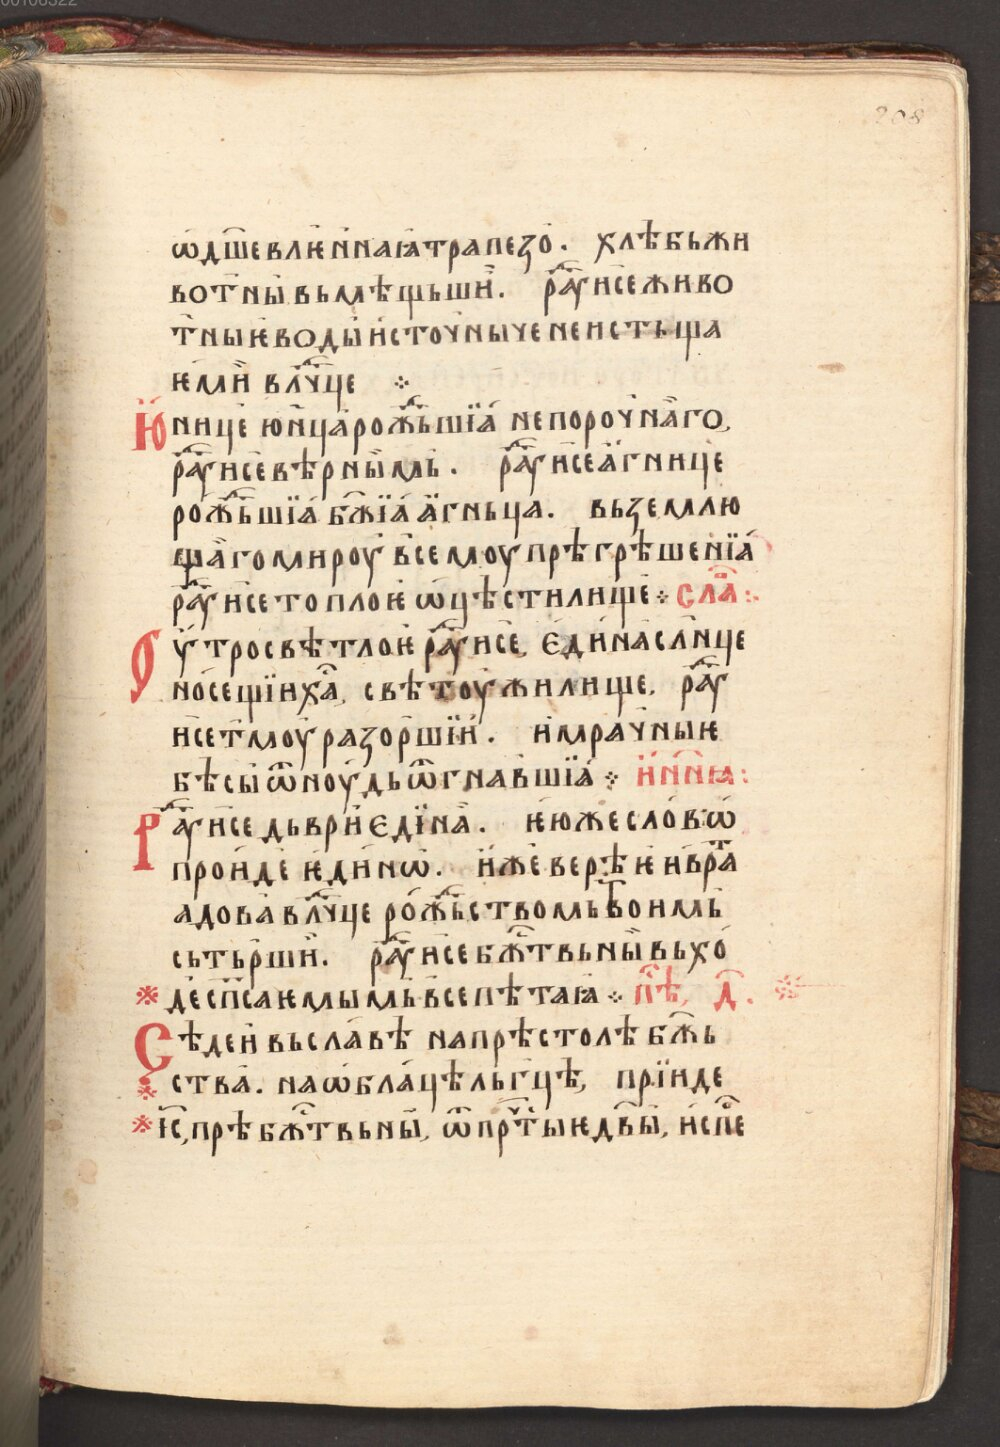 00108322
208
ѡ҆дш҃евлѥ́н̏наꙗтрапезо̀. хлѣбьжи
вот̾ны̏ вьмѣщьши̏. раⷣу́исеживо
т̾ныѥводы̀и҆сточ̾нычененⷭ҇тьща
ѥ́мы̏ влⷣчце ⁘
Ю҆нице̏ ю҆н̾ца̀рож̾дьшїа̀ непороч̾на̏го,
раⷣу́исевѣ́рны̏мь. раⷣу́исеа҆́гнице̏
рож̾дьшїа̀ бж҃їа̀ а҆́гньца. вьземлю
ща̏гомироу̀ в̾семоупрѣгрѣшенїа̀
раⷣу́исетоплоѥ ѡ҆цѣстилище ⁘ слаⷡ҇:
Оу҆́тросвѣтлоѥ раⷣу́исе, є҆ди́на̏слн҃це
но́сещїихаⷭ҇, свѣтоу̀жилище, раⷣу́
и҆сет̾моу̀разоршїи̏. и҆мрач̾ныѥ
бѣсы̀ѿноу́дьѿгнав̾шїа̀ ⁘ и҆нн҃ꙗ:
Раⷣу́исе дьври̏є҆дїна̏. ѥ҆юже сло́вѡ҆
про́иде ѥ҆ди́нѡ. и҆жеверѣѥ и҆враⷮ҇а
а҆дова̀влⷣчце рож̾дьствомь твоимь
сьтьр̾ши̏. раⷣу́исе бжⷭ҇твьны̏вьхо́
де сп҃саѥмымь в̾сепѣтаꙗ ⁘ пѣⷭ҇, д҃.
Сѣдеи̏ вьсла́вѣ напрѣстолѣ бж҃ь
ства̏. наѡ҆бла́цѣльг̾цѣ, прїиде
і҆с҃,прѣбжⷭ҇твьны̏, ѿпрⷭ҇тыѥдв҃ы̀, и҆спⷭ҇е